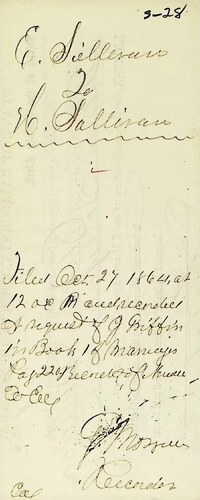 3-28
E. Sullivan
To
H. Sullivan
Filed Oct. 27 1864, at
12 and recorded
at request of J Griffin
in Book 1 of Marriages
Page 220 Records of
Co Cal
Recorder
Cal